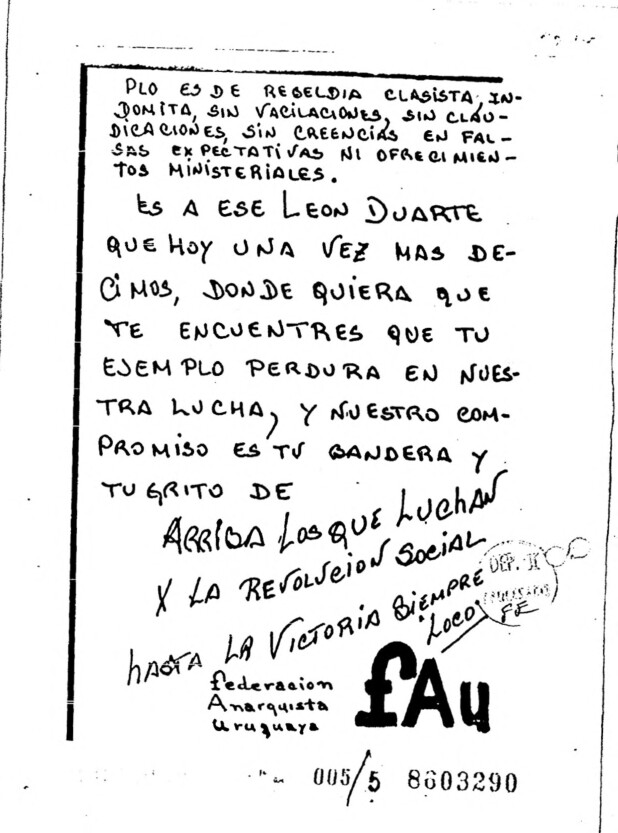 PLO ES DE REBELDIA CLASISTA, IN-
DOMITA, SIN VACILACIONES, SIN CLAU-
DICACIONES, SIN CREENCIAS EN FAL-
SAS EXPECTATIVAS NI OFRECIMIEN-
TOS MINISTERIALES.
ES A ESE LEON DUARTE
QUE HOY UNA VEZ MAS DE-
CIMOS, DONDE QUIERA QUE
TE ENCUENTRES QUE TU
EJEMPLO PERDURA EN NUES-
TRA LUCHA, Y NUESTRO COM-
PROMISO ES TU BANDERA Y
TU GRITO DE
ARRIBA LOS QUE LUCHAN
X LA REVOLUCION SOCIAL
HASTA LA VICTORIA SIEMPRE
"LOCO"
DEP. II
federacion
Anarquista
Uruguaya
fAu
005/5 8603290